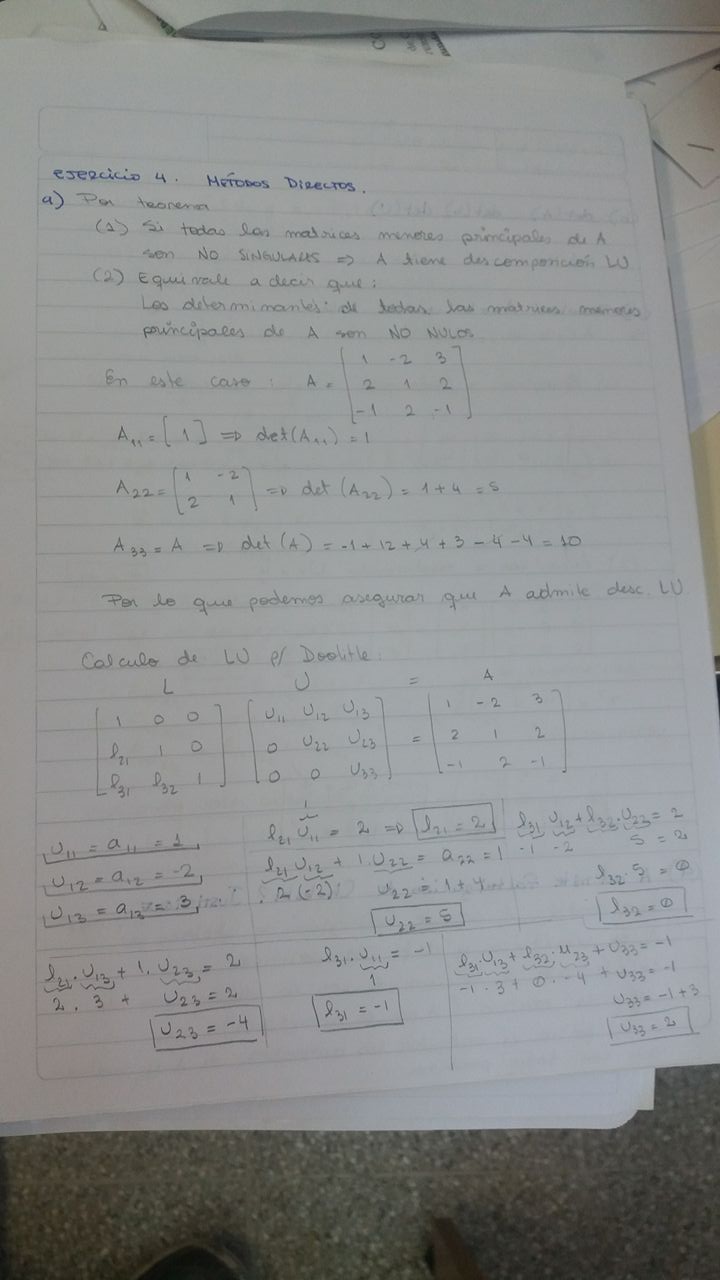 EJERCICIO 4. MÉTODOS DIRECTOS.
a) Por teorema
(1) Si todas las matrices menores principales de A
son NO SINGULARES => A tiene descomposición LU
(2) Equivale a decir que:
Los determinantes de todas las matrices menores
principales de A son NO NULOS
En este caso: A = [1 -2 3
2 1 2
-1 2 -1]
A11 = [1] => det(A11) = 1
A22 = [1 -2
2 1] => det (A22) = 1+4 = 5
A33 = A => det (A) = -1 + 12 + 4 + 3 - 4 - 4 = 10
Por lo que podemos asegurar que A admite desc. LU
Calculo de LU p/ Doolitle:
L U = A
[1 0 0
l21 1 0
l31 l32 1]
[U11 U12 U13
0 U22 U23
0 0 U33]
= [1 -2 3
2 1 2
-1 2 -1]
U11 = a11 = 1
U12 = a12 = -2
U13 = a13 = 3
1
l21 U11 = 2 => l21 = 2
l21 U12 + 1. U22 = a22 = 1
2 (-2) U22 = 1 + 4
U22 = 5
l31 U12 + l32 . U23 = 2
-1 -2 5 = 2
l32 . 5 = 0
l32 = 0
l21 . U13 + 1. U23 = 2
2 . 3 + U23 = 2
U23 = -4
l31 . U11 = -1
1
l31 = -1
l31 . U13 + l32 . U23 + U33 = -1
-1 . 3 + 0 . -4 + U33 = -1
U33 = -1 + 3
U33 = 2